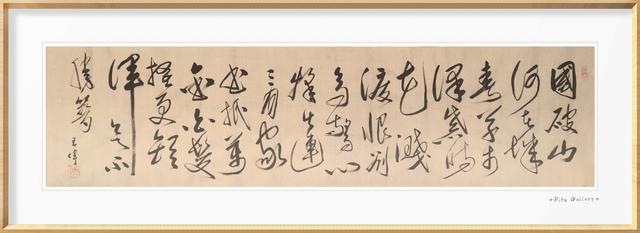 國破山
河在城
春草木
深感時
花濺
淚恨別
鳥驚心
烽火連
三月家
書抵萬
金白髮
搔更短
渾欲不
勝簪
Gallery